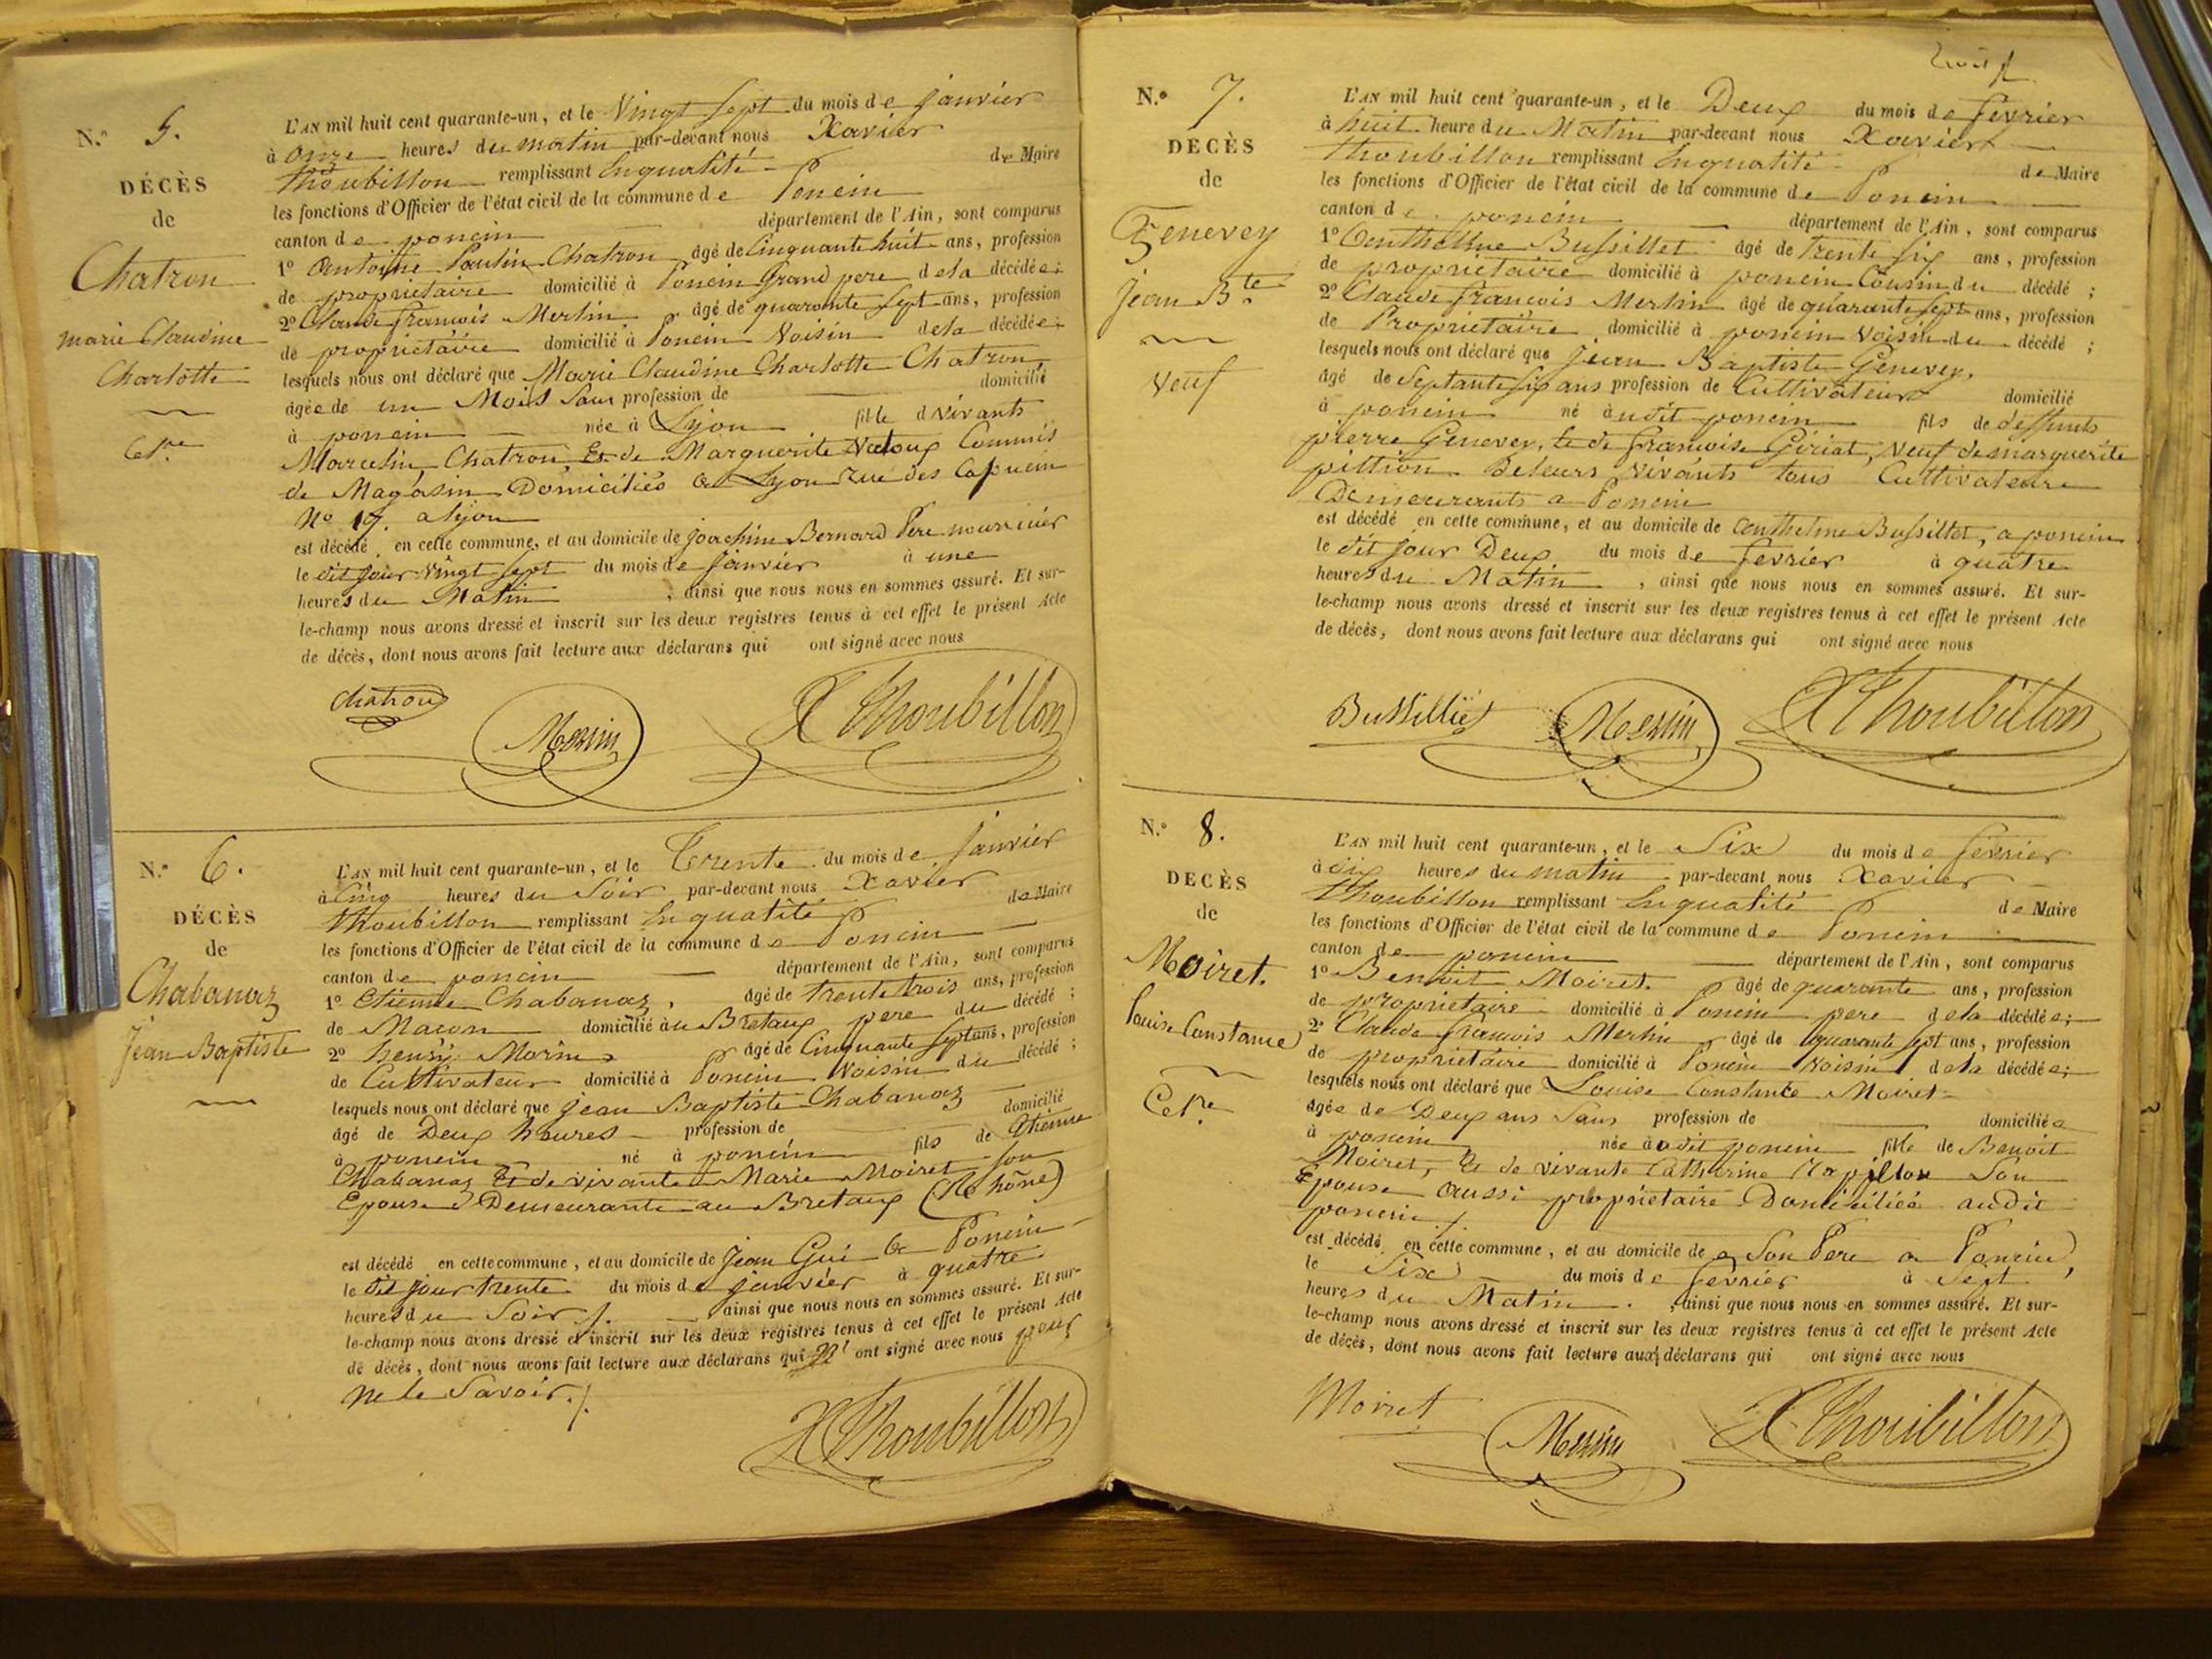 N.° 5.
DÉCÈS
de
Chatron
marie Claudine
Charlotte
Cel.re
L'AN mil huit cent quarante-un, et le Vingt Sept du mois de janvier
à Onze heures du matin par-devant nous Xavier
Thoubillon remplissant En qualité de Maire
les fonctions d'Officier de l'état civil de la commune de Poncin
canton de poncin département de l'Ain, sont comparus
1° Antoine Paulin Chatron âgé de Cinquante huit ans, profession
de propriétaire domicilié à Poncin Grand pere de la décédée;
2° Claude françois Merlin âgé de quarante Sept ans, profession
de propriétaire domicilié à Poncin Voisin de la décédée
lesquels nous ont déclaré que Marie Claudine Charlotte Chatron,
âgée de un Mois Sans profession de domicilié
à poncin née à Lyon fille d vivants
Marcelin Chatron, Et de Marguerite Commis
de Magasin Domiciliés a Lyon rue des Capucin
N° 19. a lyon
est décédé en cette commune, et au domicile de joachim Bernard Pere nourricier
le dit jour Vingt Sept du mois de janvier à une
heures du Matin, ainsi que nous nous en sommes assuré. Et sur-
le-champ nous avons dressé et inscrit sur les deux registres tenus à cet effet le présent Acte
de décès, dont nous avons fait lecture aux déclarans qui ont signé avec nous
Chatron Merlin X Thoubillon
N.° 6.
DÉCÈS
de
Chabanaz
Jean Baptiste
L'AN mil huit cent quarante-un, et le Trente du mois de janvier
à Cinq heures du Soir par-devant nous Xavier
Thoubillon remplissant En qualité de Maire
les fonctions d'Officier de l'état civil de la commune de Poncin
canton de poncin département de l'Ain, sont comparus
1° Etienne Chabanaz, âgé de trente trois ans, profession
de Macon domicilié au Bretaux pere du décédé;
2° henry Morin âgé de Cinquante Sept ans, profession
de Cultivateur domicilié à Poncin Voisin du décédé;
lesquels nous ont déclaré que jean Baptiste Chabanaz
âgé de Deux heures profession de domicilié
à poncin né à poncin fils de Etienne
Chabanaz Et de vivante Marie Moiret son
Epouse Demeurante au Bretaux (Rhône)
est décédé en cette commune, et au domicile de Jean Gui a Poncin
le dit jour trente du mois de janvier à quatre
heures du Soir ./. ainsi que nous nous en sommes assuré. Et sur-
le-champ nous avons dressé et inscrit sur les deux registres tenus à cet effet le présent Acte
de décès, dont nous avons fait lecture aux déclarans qui N' ont signé avec nous pour
ne le Savoir ./.
X Thoubillon
N.° 7.
DÉCÈS
de
Genevey
jean B.te
Veuf
L'AN mil huit cent quarante-un, et le Deux du mois de fevrier
à huit heure du Matin par-devant nous Xavier
Thoubillon remplissant En qualité de Maire
les fonctions d'Officier de l'état civil de la commune de Poncin
canton de poncin département de l'Ain, sont comparus
1° Anthelme Bussillet âgé de trente six ans, profession
de propriétaire domicilié à poncin Cousin du décédé;
2° Claude françois Merlin âgé de quarante Sept ans, profession
de Propriétaire domicilié à poncin Voisin du décédé;
lesquels nous ont déclaré que jean Baptiste Genevey,
âgé de Septante six ans profession de Cultivateur domicilié
à poncin né audit poncin fils de deffunts
pierre Genevey, et de françoise Giriat, Veuf de marguerite
pittion. De leurs vivants tous Cultivateurs
Demeurants a Poncin
est décédé en cette commune, et au domicile de anthelme Bussillet, a poncin
le dit jour Deux du mois de fevrier à quatre
heures du Matin, ainsi que nous nous en sommes assuré. Et sur-
le-champ nous avons dressé et inscrit sur les deux registres tenus à cet effet le présent Acte
de décès, dont nous avons fait lecture aux déclarans qui ont signé avec nous
Bussilliet Merlin X Thoubillon
N.° 8.
DÉCÈS
de
Moiret.
louise Constance
Cel.re
L'AN mil huit cent quarante-un, et le Six du mois de fevrier
à dix heures du matin par-devant nous Xavier
Thoubillon remplissant En qualité de Maire
les fonctions d'Officier de l'état civil de la commune de Poncin
canton de poncin département de l'Ain, sont comparus
1° Benoit Moiret. âgé de quarante ans, profession
de propriétaire domicilié à Poncin pere de la décédée;
2° Claude françois Merlin âgé de quarante Sept ans, profession
de propriétaire domicilié à Poncin Voisin de la décédée;
lesquels nous ont déclaré que Louise Constance Moiret
âgée de Deux ans Sans profession de domiciliée
à poncin née audit poncin fille de Benoit
Moiret, Et de vivante Catherine Son
Epouse aussi propriétaire Domiciliée audit
poncin ./.
est décédé en cette commune, et au domicile de Son Pere a Poncin,
le Six du mois de fevrier à Sept
heures du Matin. ainsi que nous nous en sommes assuré. Et sur-
le-champ nous avons dressé et inscrit sur les deux registres tenus à cet effet le présent Acte
de décès, dont nous avons fait lecture aux déclarans qui ont signé avec nous
Moiret Merlin X Thoubillon